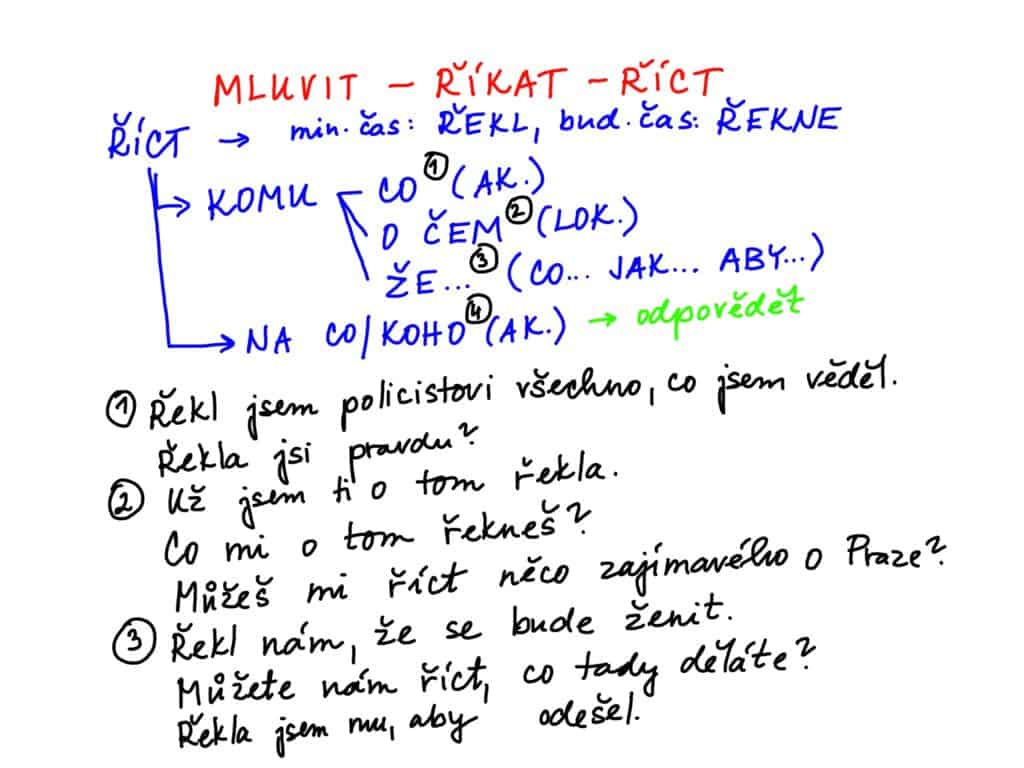 MLUVIT – ŘÍKAT – ŘÍCT
ŘÍCT → min. čas: ŘEKL, bud. čas: ŘEKNE
→ KOMU CO ① (AK.)
O ČEM ② (LOK.)
ŽE... ③ (CO... JAK... ABY...)
→ NA CO/KOHO ④ (AK.) → odpovědět
① Řekl jsem policistovi všechno, co jsem věděl.
Řekla jsi pravdu?
② Už jsem ti o tom řekla.
Co mi o tom řekneš?
Můžeš mi říct něco zajímavého o Praze?
③ Řekl nám, že se bude ženit.
Můžete nám říct, co tady děláte?
Řekla jsem mu, aby odešel.